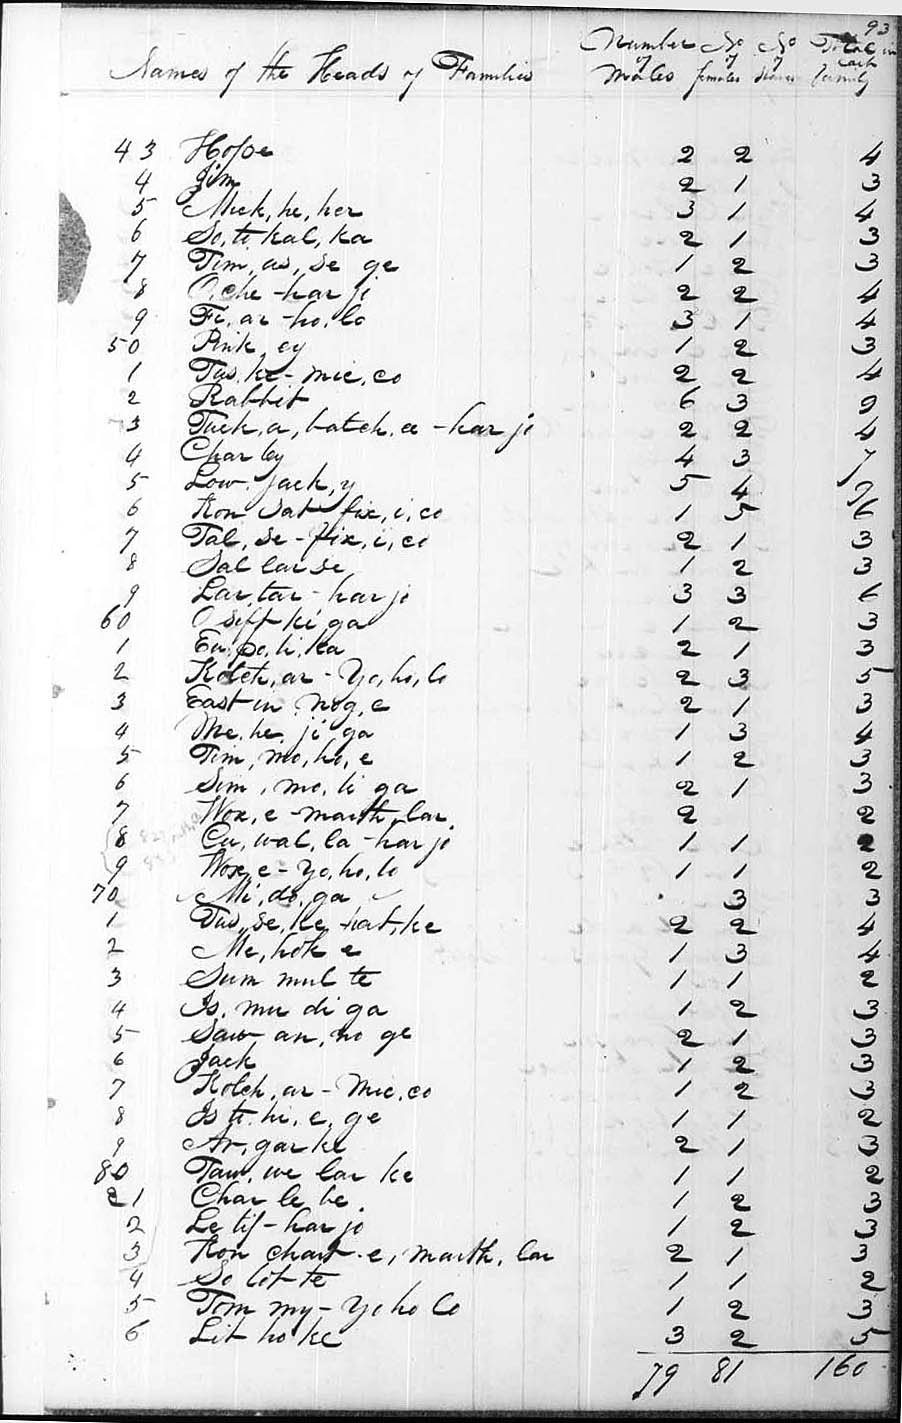 93
Number No No Total in
of of of each
Names of the Heads of Families Males females Slaves family
43 Hope 2 2 4
4 Jim 2 1 3
5 Mick, he, her 3 1 4
6 So, ti kal, ka 2 1 3
7 Tim, as, se ge 1 2 3
8 O, che - har jo 2 2 4
9 Fi, ar - ho, lo 3 1 4
50 Pink, ey 1 2 3
1 Tus, ke - mic, co 2 2 4
2 Rabbit 6 3 9
3 Tuck, a, batch, a - har jo 2 2 4
4 Charley 4 3 7
5 Low, jack, y 5 4 9
6 Kon Sat fix, i, co 1 5 6
7 Tal, se - fix, i, co 2 1 3
8 Sal lar se 1 2 3
9 Lar, tar - har jo 3 3 6
60 O siff ki ga 1 2 3
1 Eu, po, li, ka 2 1 3
2 Kotch, ar - Yo, ho, lo 2 3 5
3 East in nog, e 2 1 3
4 Me, he, ji ga 1 3 4
5 Tim, mo, ho, e 1 2 3
6 Sim, mo, li ga 2 1 3
7 Wox, e - marth, lar 2 2
8 Cu, wal, la - har jo 1 1 2
9 Wox, e - Yo, ho, lo 1 1 2
70 Mi, do, ga 3 3
1 Tus, se, ke, hat, ke 2 2 4
2 Me, hok e 1 3 4
3 Sum mul te 1 1 2
4 Is, mu di ga 1 2 3
5 Saw an, no ge 2 1 3
6 Jack 1 2 3
7 Kotch, ar - Mic, co 1 2 3
8 Is ti, hi, e, ge 1 1 2
9 Ar, gar ke 2 1 3
80 Taw, we lar ke 1 1 2
81 Char le be 1 2 3
2 Le tif - har jo 1 2 3
3 Kon chart - e, marth, lar 2 1 3
4 So lot te 1 1 2
5 Tom my - Yo ho lo 1 2 3
6 Lit ho ke 3 2 5
79 81 160